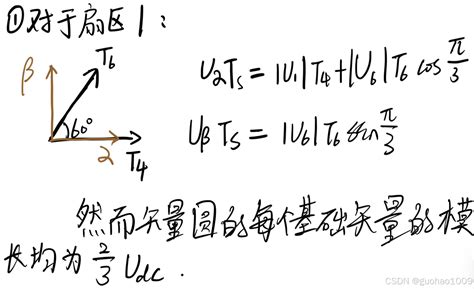 ①对于扇区1:
β
T₆
60°
α T₄
UαTₛ = |U₁|T₄+|U₆|T₆ cos π/3
Uβ Tₛ = |U₆|T₆ sin π/3
然而矢量圆的每个基础矢量的模
长均为 2/3 Udc.
CSDN @guohao1009